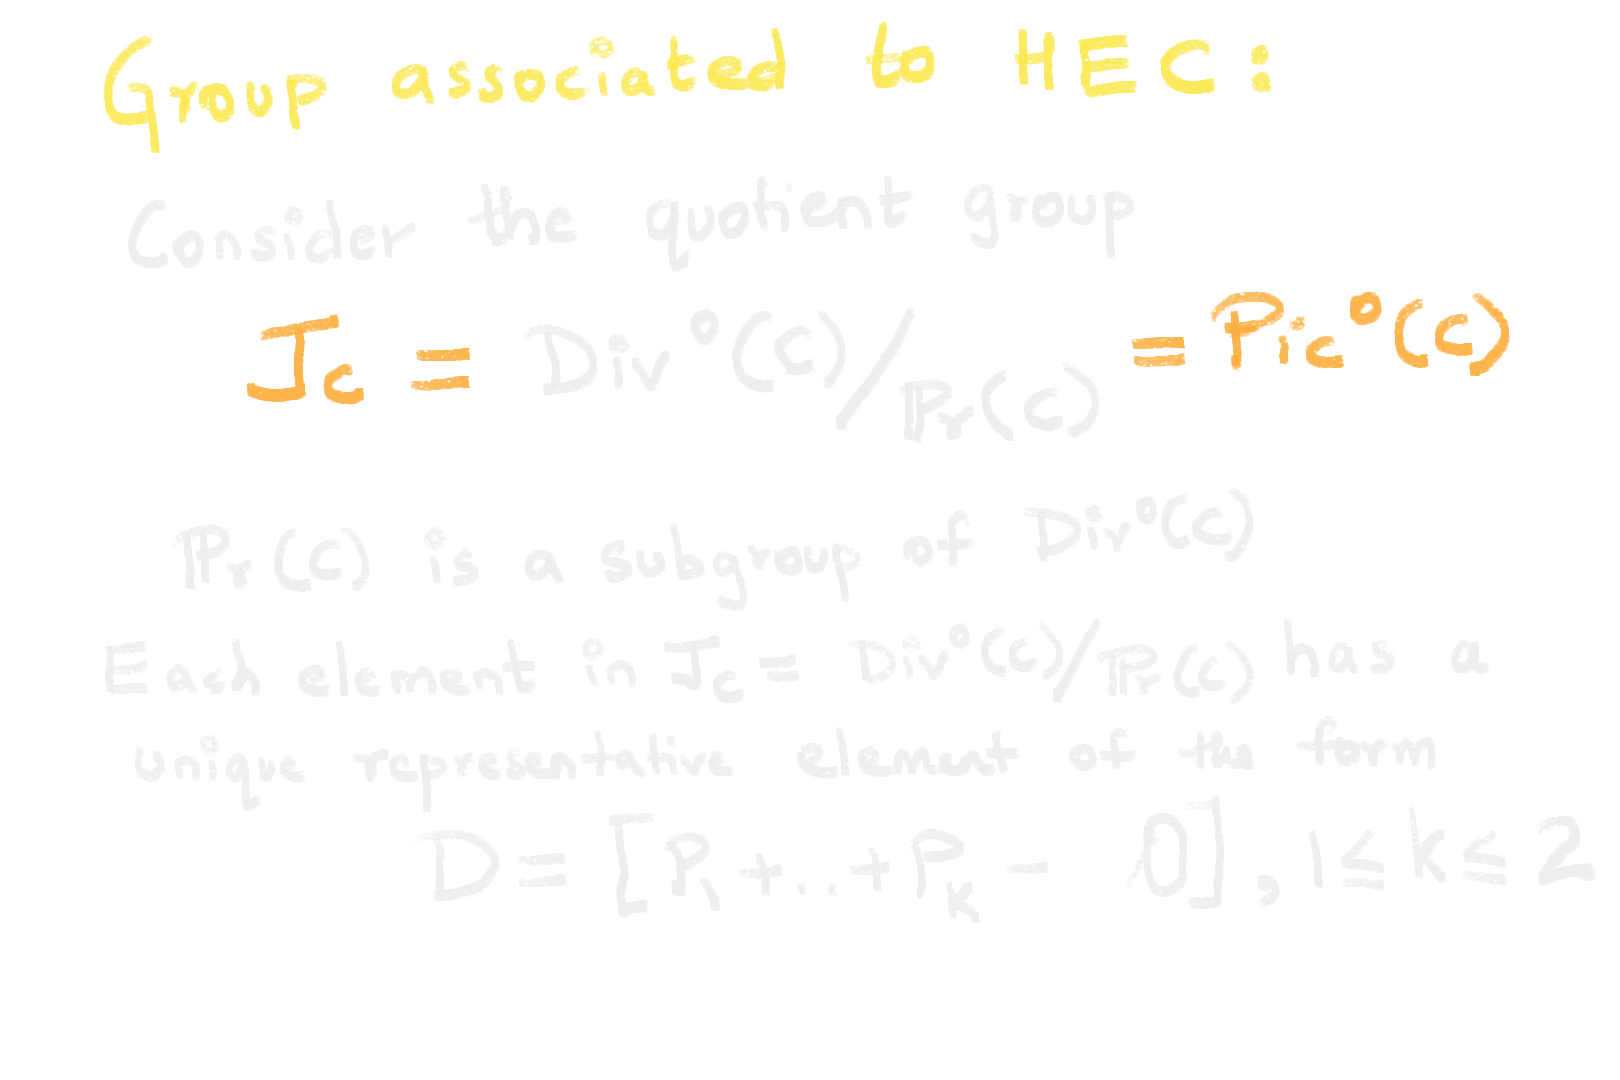 Group associated to HEC:
Consider the quotient group
J_C = Div⁰(C)/ℙr(C) = Pic⁰(C)
ℙr(C) is a subgroup of Div⁰(C)
Each element in J_C = Div⁰(C)/ℙr(C) has a
unique representative element of the form
D = [P₁ + .. + P_k - O], 1 ≤ k ≤ 2